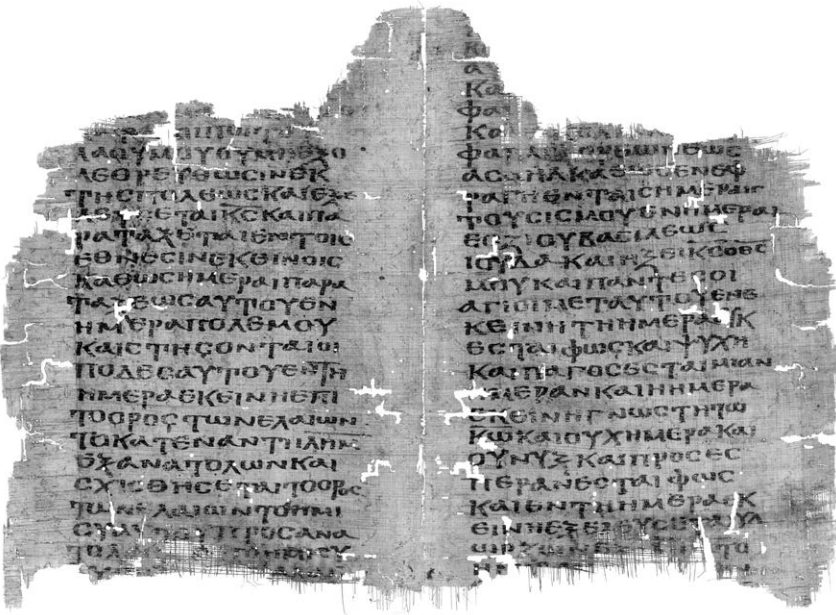 ΛΑΟΥΜΟΥΟΥΜΗΕΞΟ
ΛΕΘΡΕΥΘΩCΙΝΕΚ
ΤΗCΠΟΛΕΩCΚΑΙΕΞΕ
ΛΕΥCΕΤΑΙΚ̅C̅ΚΑΙΠΑ
ΡΑΤΑΞΕΤΑΙΕΝΤΟΙC
ΕΘΝΕCΙΝΕΚΕΙΝΟΙC
ΚΑΘΩCΗΜΕΡΑΙΠΑΡΑ
ΤΑΞΕΩCΑΥΤΟΥΕΝ
ΗΜΕΡΑΠΟΛΕΜΟΥ
ΚΑΙCΤΗCΟΝΤΑΙΟΙ
ΠΟΔΕCΑΥΤΟΥΕΝΤΗ
ΗΜΕΡΑΕΚΕΙΝΗΕΠΙ
ΤΟΟΡΟCΤΩΝΕΛΑΙΩΝ
ΤΟΚΑΤΕΝΑΝΤΗΙΛΗΜ
ΕΞΑΝΑΤΟΛΩΝΚΑΙ
CΧΙCΘΗCΕΤΑΙΤΟΟΡΟC
ΤΩΝΕΛΑΙΩΝΤΟΗΜΙ
CΥΑΥΤΟΥΠΡΟCΑΝΑ
Κ
Α
ΚΑ
ΦΑ
ΚΑ
ΡΑΓΗΕΝΤΑΙCΗΜΕΡΑΙC
ΤΟΥCΙCΜΟΥΕΝΗΜΕΡΑΙ
ΕCΟΖΙΟΥΒΑCΙΛΕΩC
ΙΟΥΔΑΚΑΙΗΞΕΙΚ̅C̅Ο̅Θ̅C̅
ΜΟΥΚΑΙΠΑΝΤΕCΟΙ
ΑΓΙΟΙΜΕΤΑΥΤΟΥΕΝΕ
ΚΕΙΝΗΤΗΗΜΕΡΑΟΥΚ
ΕCΤΑΙΦΩCΚΑΙΨΥΧΗ
ΚΑΙΠΑΓΟCΕCΤΑΙΜΙΑΝ
ΗΜΕΡΑΝΚΑΙΗΗΜΕΡΑ
ΕΚΕΙΝΗΓΝΩCΤΗΤΩ
Κ̅Ω̅ΚΑΙΟΥΧΗΜΕΡΑΚΑΙ
ΟΥΝΥΞΚΑΙΠΡΟCΕC
ΠΕΡΑΝΕCΤΑΙΦΩC
ΚΑΙΕΝΤΗΗΜΕΡΑΕΚ
ΕΙΝΗΕΞΕΛΕΥCΕΤΑΙΥΔ